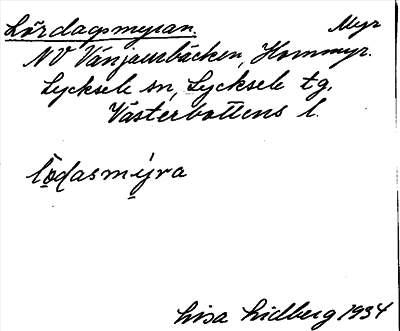 Lördagsmyran. Myr
NV Vänjaurbäcken, Hornmyr.
Lycksele sn, Lycksele tg,
Västerbottens l.
lọ̈dasmý̱ra
Lisa Lidberg 1934